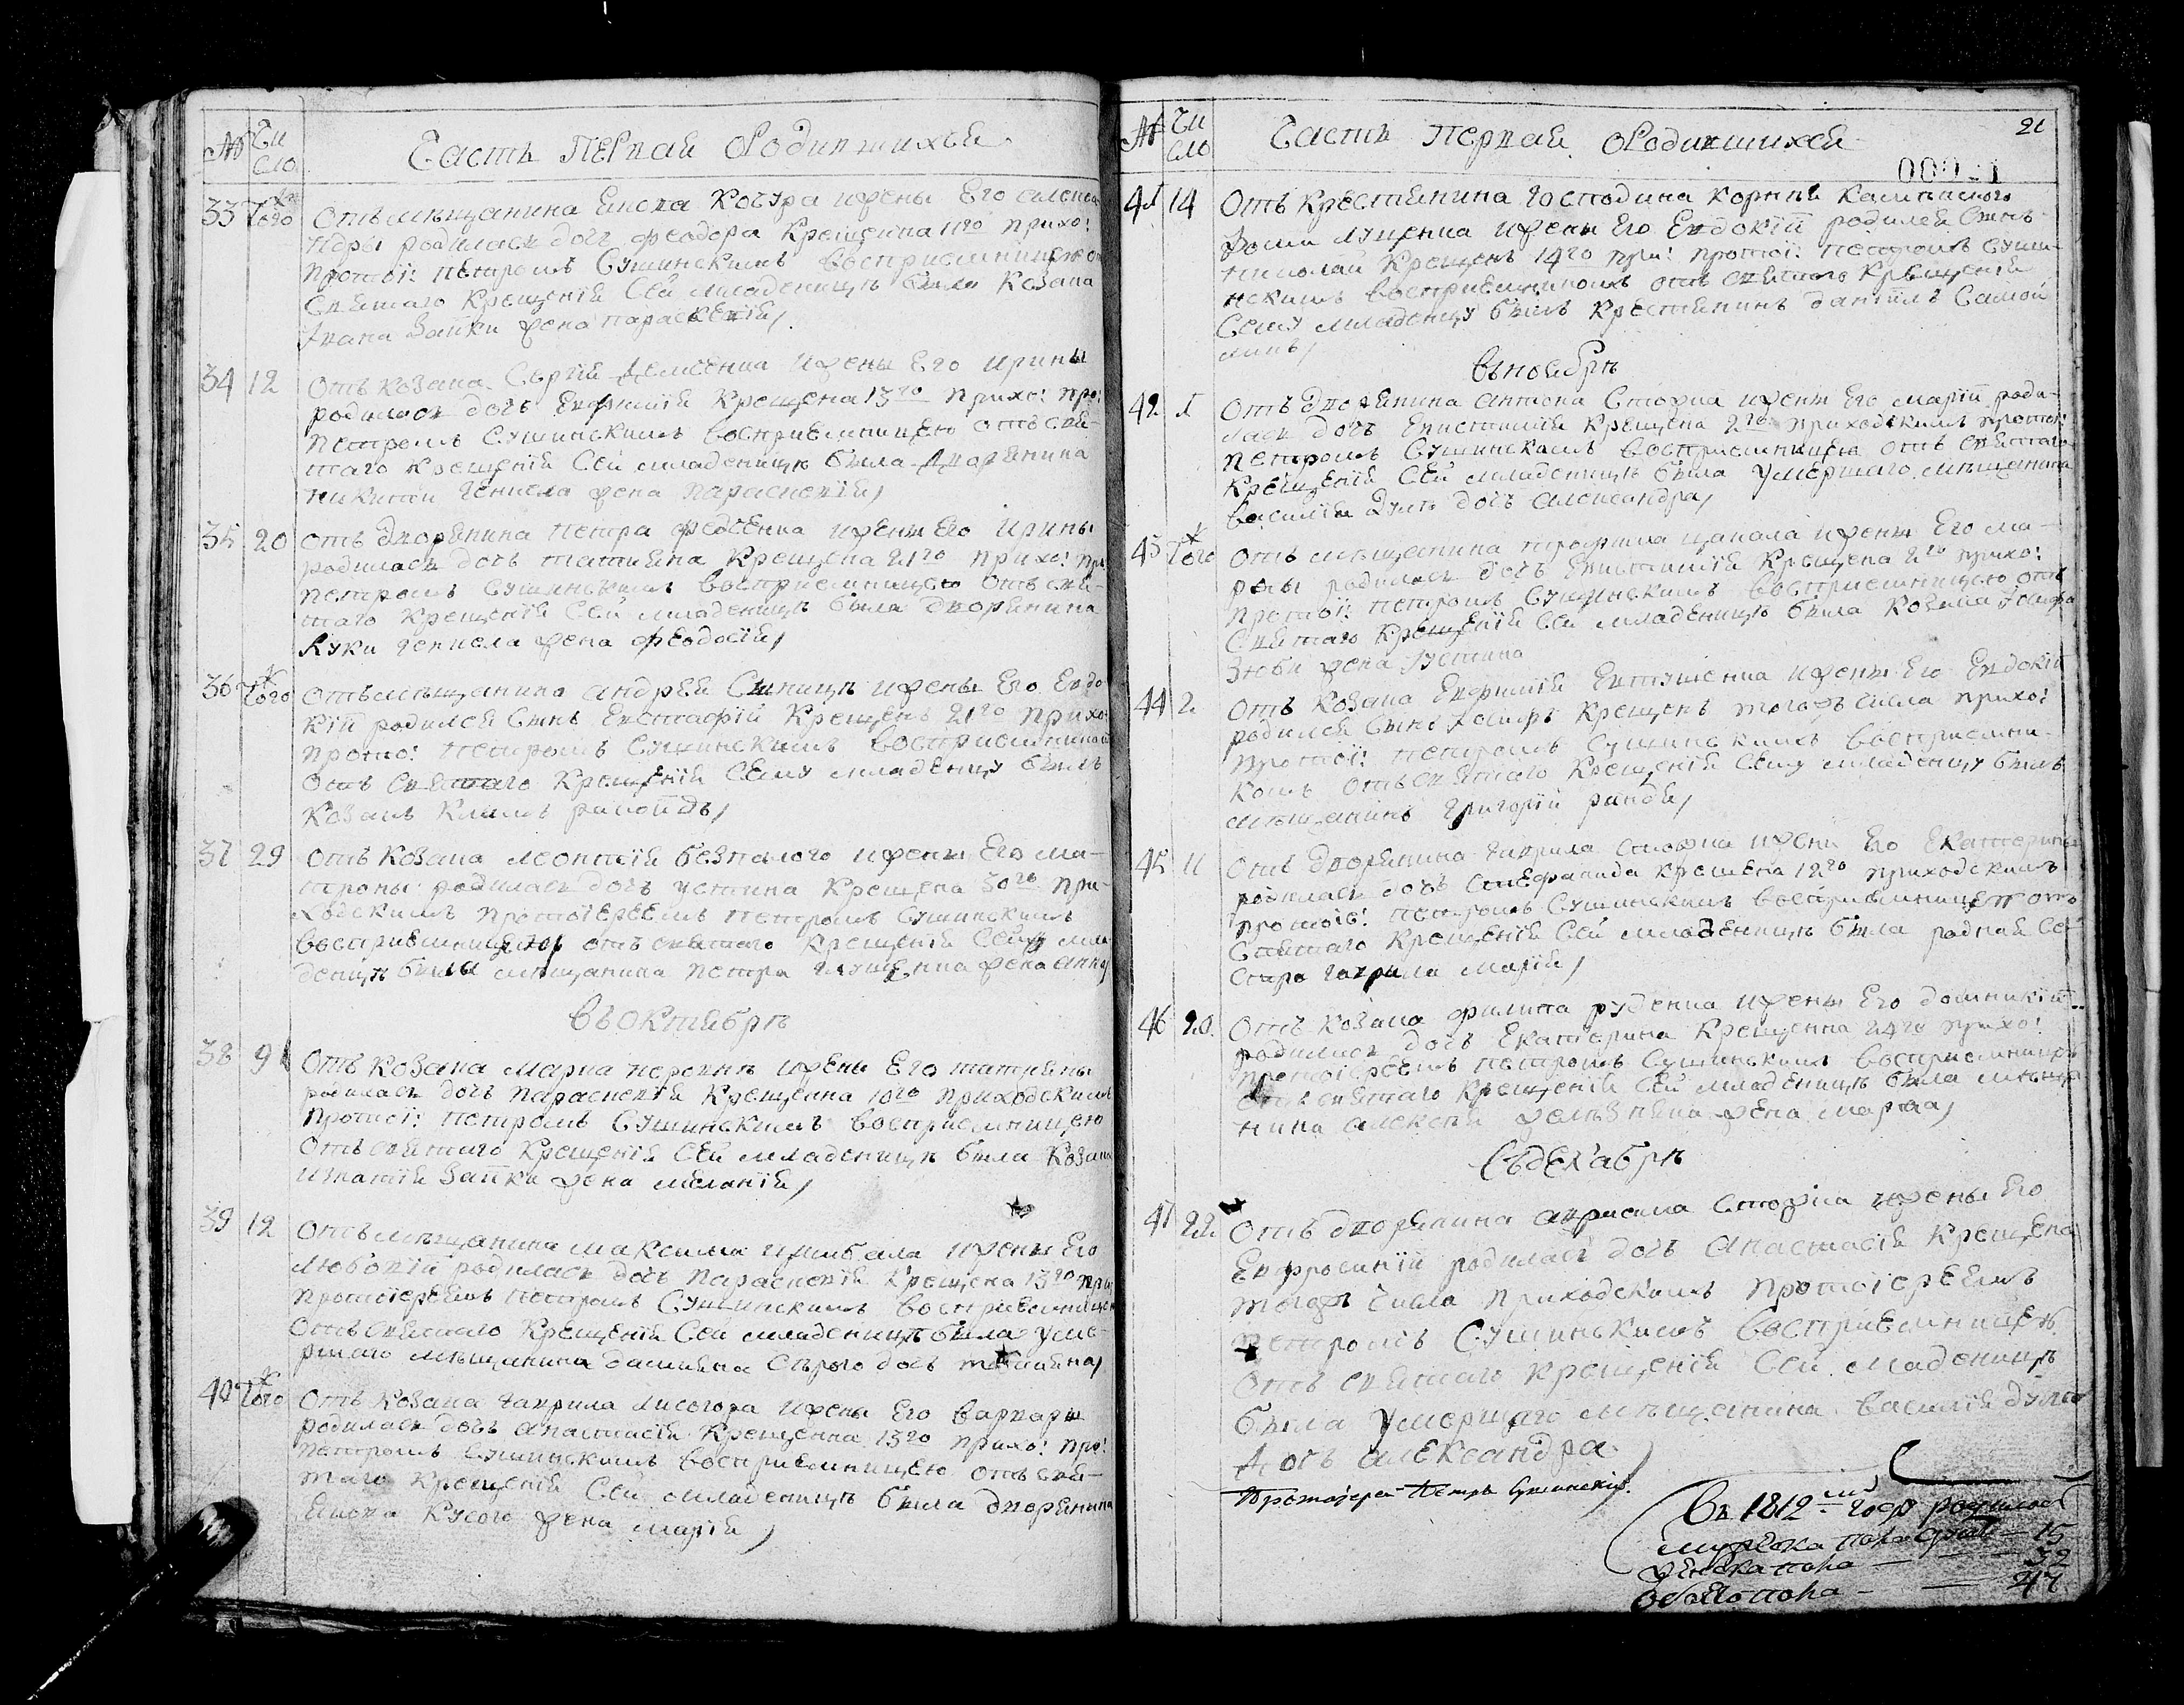 № Чи
сло
Часть Первая о Родившихся
33 Того Отъ мещанина Енока Коцура и жены Его Алексан
дры родилась дочь Феодора Крещенна 11го прихо:
протоі: Петромъ Сушинскимъ восприемницею от
Святаго Крещенія Сей младеницѣ была Козака
Ивана Заики жена Параскевія
34 12 Отъ Козака Сергія Демченка и жены Его Ирины
родилась дочь Евфимія Крещена 13го прихо: про:
Петромъ Сушинскимъ восприемницею отъ свя-
таго Крещенія Сей младеницѣ была Дворянина
Никиты жена Параскевія
35 20 Отъ дворянина Петра Федченка и жены Его Ирины
родилась дочь Татіяна Крещена 21го прихо: пр:
Петромъ Сушинскимъ восприемницею отъ свя-
таго Крещенія Сей младеницѣ была дворянина
Луки жена Феодосія
36 Того Отъ мещанина Андрея Синицѣ и жены Его Евдо
кіи родился Сынъ Евстафій Крещенъ 21го прихо:
прото: Петромъ Сушинскимъ восприемникомъ
Отъ Святаго Крещенія Сему младенцу былъ
Козакъ Климъ
37 29 Отъ Козака Леонтія Безпалого и жены Его Ма-
троны родилась дочь Устина Крещена 30го при-
ходскимъ протоіереемъ Петромъ Сушинскимъ
восприемницею отъ святаго Крещенія Сей мла
деницѣ была мещанина Петра Глущенка жена Анна
въ октябрѣ
38 9 Отъ Козака Марка и жены Его Татіяны
родилась дочь Параскевія Крещенна 10го приходскимъ
протоі: Петромъ Сушинскимъ восприемницею
Отъ святаго Крещенія Сей младеницѣ была Козака
Игнатія Заики жена Меланія
39 12 Отъ мещанина Максима Цимбала и жены Его
Любовіи родилась дочь Параскевія Крещена 13го при
протоіереемъ Петромъ Сушинскимъ восприемницею
Отъ Святаго Крещенія Сей младеницѣ была Уме-
ршаго мещанина Даміяна Сѣрого дочь Татіяна
40 Того Отъ Козака Гаврила Лисогора и жены Его Варвары
родилась дочь Анастасія Крещенна 13го прихо: про:
Петромъ Сушинскимъ восприемницею отъ свя-
таго Крещенія Сей младеницѣ была дворянина
Енока Кусого жена Марія
№ Чи
сло
Часть Первая о Родившихся
21
00021
41 14 Отъ Крестянина Господина Корнѣя
Фомы Луценка и жены Его Евдокіи родился Сынъ
Николай Крещенъ 14го при: протоі: Петромъ Суши-
нскимъ восприемникомъ отъ святаго Крещенія
Сему младенцу былъ Крестянинъ Даніилъ Самой
ликъ
въ ноябрѣ
42 1 Отъ дворянина Антона Сторжа и жены Его Маріи роди-
лась дочь Епистимія Крещена 2го приходскимъ прото:
Петромъ Сушинскимъ восприемницею отъ святаго
Крещенія Сей младеницѣ была Умершаго мещанина
Василія дочь Александра
43 Того Отъ мещанина Трофима Цапала и жены Его Ма-
ріи родилась дочь Епистимія Крещена 2го прихо:
протоі: Петромъ Сушинскимъ восприемницею отъ
Святаго Крещенія Сей младеницѣ была Козака Іосифа
Зюби жена Устина
44 2 Отъ Козака Евфимія Евтушенка и жены Его Евдокіи
родился сынъ Іосифъ Крещенъ тогожъ числа прихо:
протоі: Петромъ Сушинскимъ восприемни-
комъ отъ святаго Крещенія Сему младенцу былъ
мещанинъ Григорій
45 11 Отъ дворянина Гаврила Сторжа и жены Его Екатерины
родилась дочь Стефанида Крещена 12го приходскимъ
протоіе: Петромъ Сушинскимъ восприемницею отъ
Святаго Крещенія Сей младеницѣ была родная Се-
стра Гаврила Марія
46 20 Отъ Козака Филипа Руденка и жены Его Домникіи
родилась дочь Екатерина Крещенна 24го прихо:
протоіереемъ Петромъ Сушинскимъ восприемницею
отъ святаго Крещенія Сей младеницѣ была меща
нина Алексѣя жена Марфа
въ декабрѣ
47 22 Отъ дворянина Сторжа и жены Его
Евфросиніи родилась дочь Анастасія Крещена
тогожъ числа приходскимъ протоіереемъ
Петромъ Сушинскимъ восприемницею
Отъ святаго Крещенія Сей младеницѣ
была Умершаго мещанина Василія
дочь Александра
Протоіерей Петръ Сушинскій
Въ 1812мъ годѣ родилось
мужеска пола душъ — 15
женска пола — 32
Обоего пола — 47